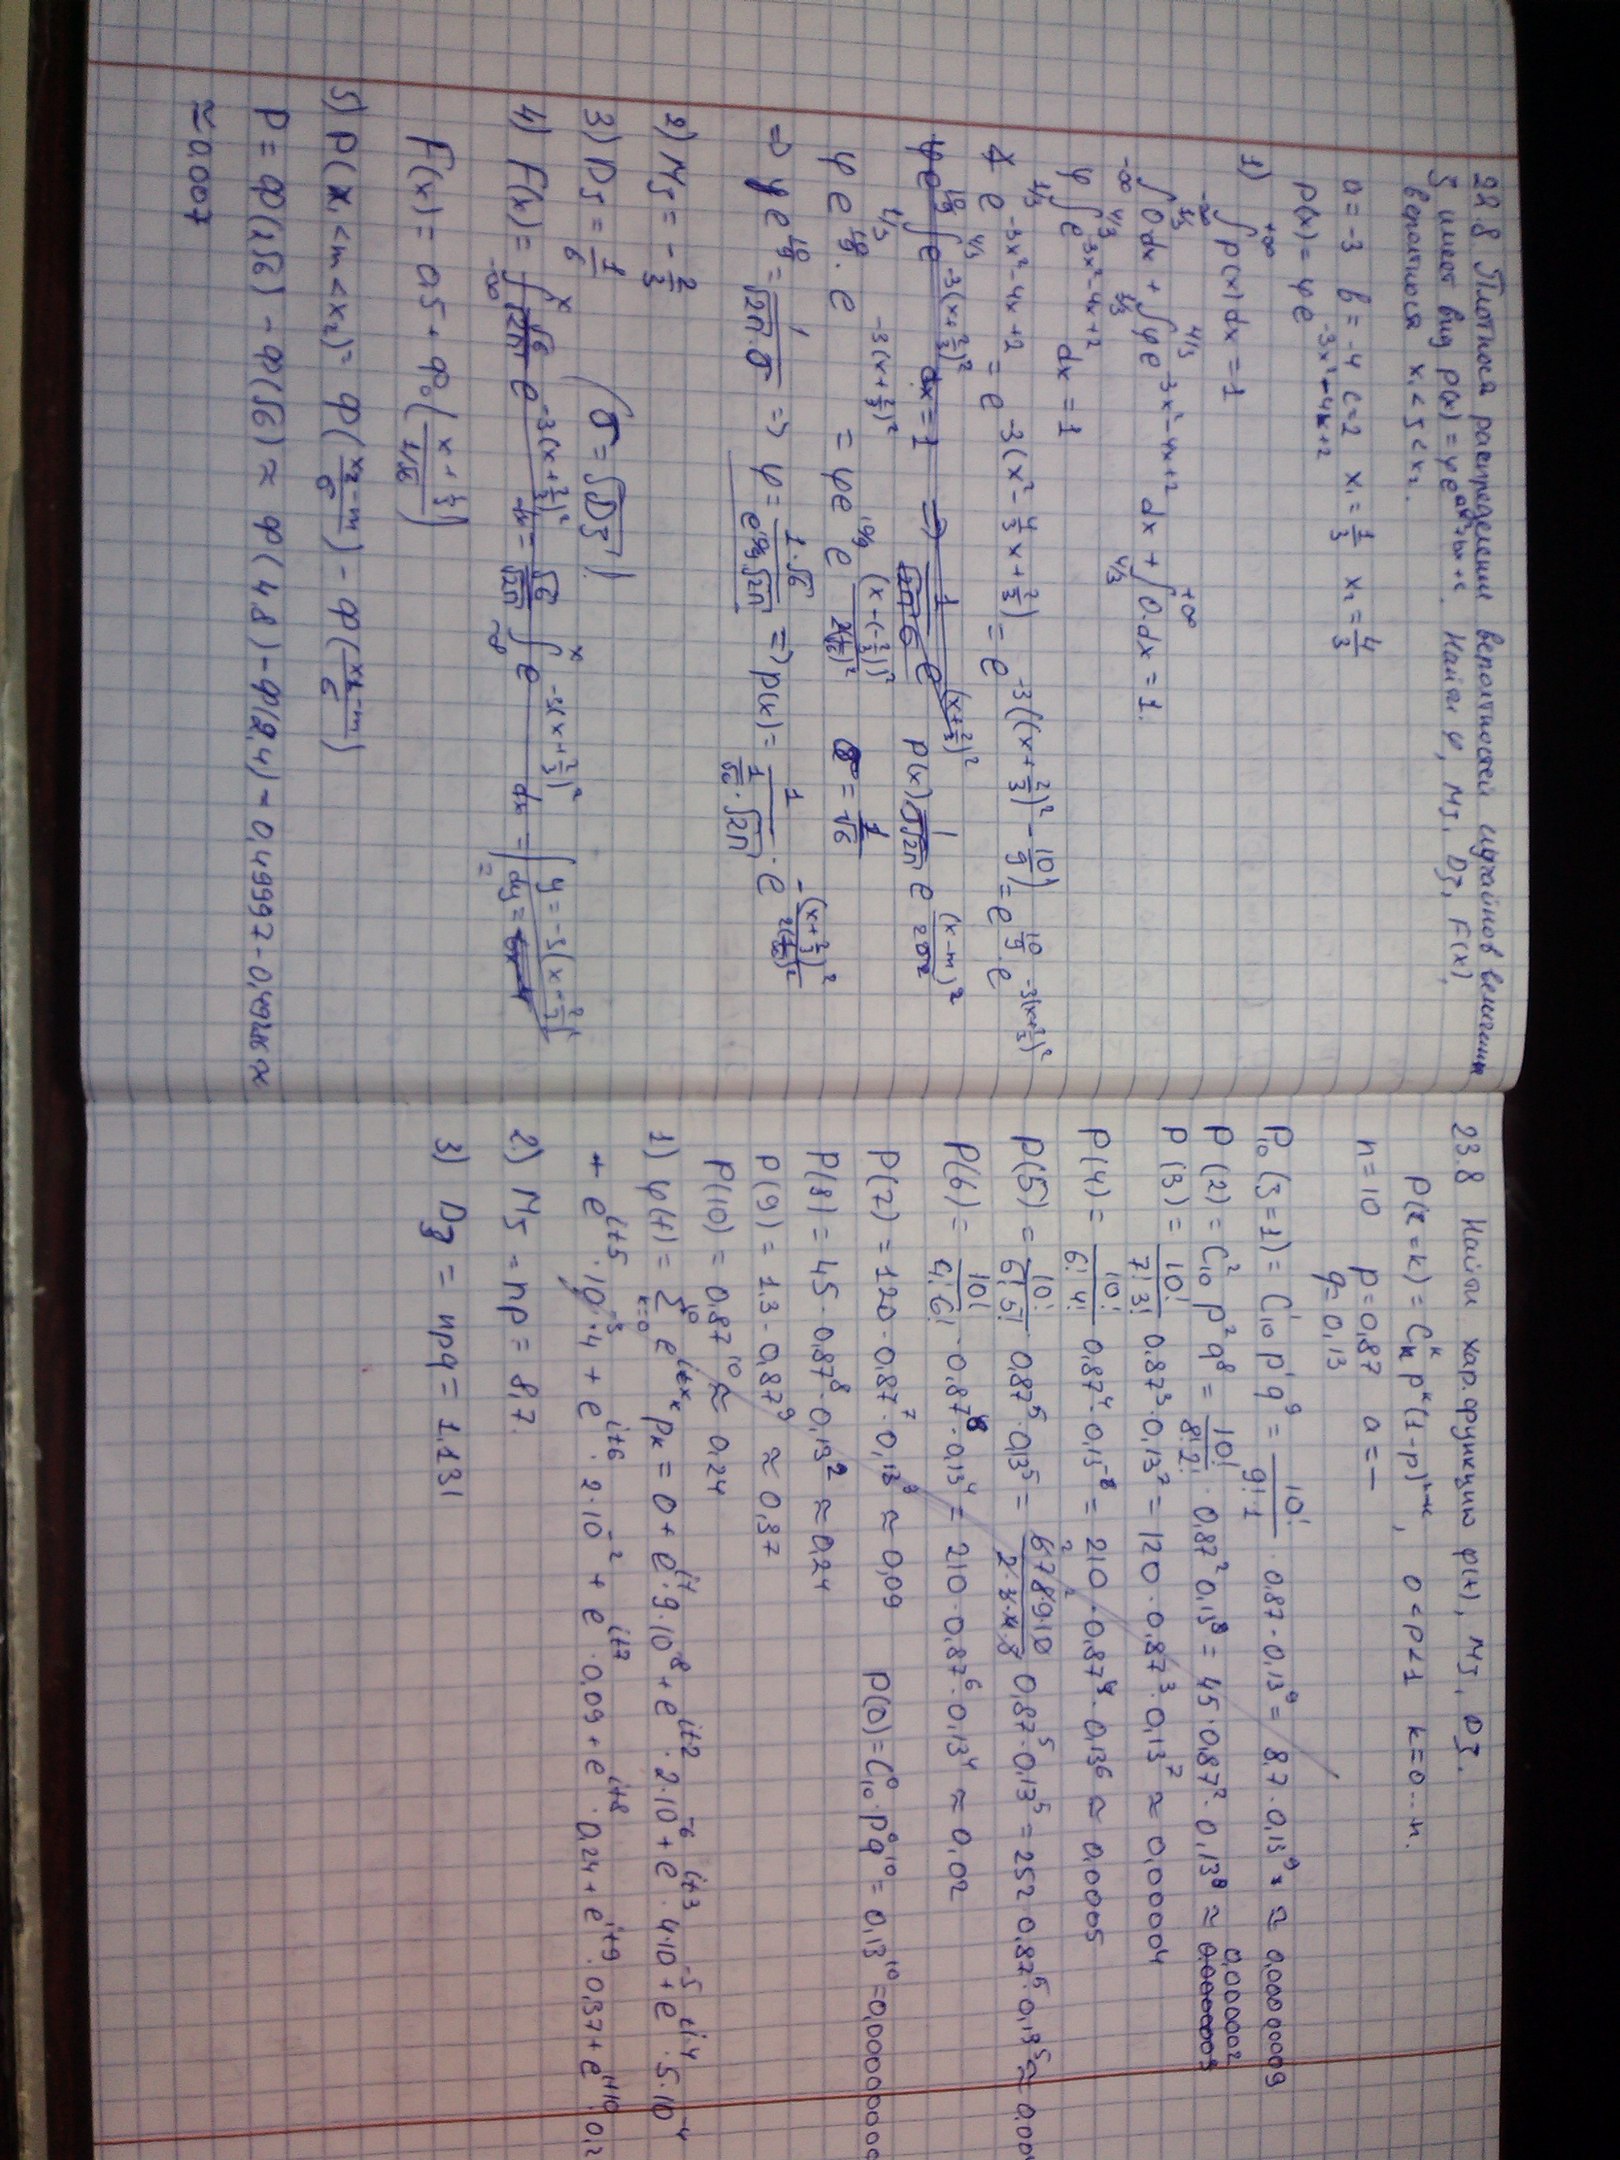 22.8 Плотность распределения вероятностей случайной величины
ξ имеет вид p(x) = φe^{ax²+bx+c}. Найти φ, Mξ, Dξ, F(x),
вероятность x₁ < ξ < x₂.
a = -3 b = -4 c = 2 x₁ = 1/3 x₂ = 4/3
p(x) = φe^{-3x²-4x+2}
1) ∫_{-∞}^{+∞} p(x)dx = 1
∫_{-∞}^{1/3} 0·dx + ∫_{1/3}^{4/3} φe^{-3x²-4x+2} dx + ∫_{4/3}^{+∞} 0·dx = 1.
φ ∫_{1/3}^{4/3} e^{-3x²-4x+2} dx = 1
e^{-3x²-4x+2} = e^{-3(x²-4/3x+2/3)} = e^{-3((x+2/3)²-10/9)} = e^{10/9}·e^{-3(x+2/3)²}
φe^{10/9} ∫_{1/3}^{4/3} e^{-3(x+2/3)²} dx = 1 ⇒ 1/(√2π σ) e^{(x+2/3)²} p(x) 1/(σ√2π) e^{(x-m)²/2σ²}
φe^{10/9}·e^{-3(x+2/3)²} = φe^{10/9} e^{(x-(-2/3))²/2(1/√6)²} σ = 1/√6
⇒ φe^{10/9} = 1/(√2π·σ) ⇒ φ = 1·√6/(e^{10/9}·√2π) ⇒ p(x) = 1/(1/√6·√2π)·e^{-(x+2/3)²/2(1/√6)²}
2) Mξ = -2/3
3) Dξ = 1/6 (σ = √Dξ)!
4) F(x) = ∫_{-∞}^{x} √6/√2π e^{-3(x+2/3)²} dx = √6/√2π ∫_{-∞}^{x} e^{-3(x+2/3)²} dx = | y = -3(x-2/3)² dy = =
F(x) = 0,5 + Φ₀((x+1/3)/(1/√6))
5) P(x₁ < m < x₂) = Φ((x₂-m)/σ) - Φ((x1-m)/σ)
P = Φ(2√6) - Φ(√6) ≈ Φ(4.8) - Φ(2,4) = 0,49997 - 0,49286 ≈
≈ 0.007
23.8 Найти хар. функцию φ(t), Mξ, Dξ.
P(ξ=k) = C_n^k p^k (1-p)^{n-k}, 0 < p < 1 k = 0...n.
n = 10 p = 0,87 a = —
q = 0,13
P₁₀(ξ=1) = C¹₁₀ p¹ q⁹ = 10!/(9!·1) · 0,87 · 0,13⁹ = 8,7 · 0,13⁹ ≈ 0,00000009
P(2) = C²₁₀ p² q⁸ = 10!/(8!2!) · 0,87² 0,13⁸ = 45·0,87²·0,13⁸ ≈ 0,000002
P(3) = 10!/(7!3!) 0.87³·0,13⁷ = 120·0,87³·0,13⁷ ≈ 0,00004
P(4) = 10!/(6!4!) 0,87⁴·0,13⁶ = 210·0,87⁴·0,13⁶ ≈ 0,0005
P(5) = 10!/(5!5!) 0,87⁵·0,13⁵ = 6 7 8 9 10/(2·3·4·5) 0,87⁵·0,13⁵ = 252 0,87⁵·0,13⁵ ≈ 0,004
P(6) = 10!/(4!6!) · 0,87⁶·0,13⁴ = 210·0,87⁶·0,13⁴ ≈ 0,02
P(7) = 120·0,87⁷·0,13³ ≈ 0,09 P(0) = C⁰₁₀·p⁰q¹⁰ = 0,13¹⁰ = 0,00000000
P(8) = 45·0,87⁸·0,13² ≈ 0,24
P(9) = 1.3·0,87⁹ ≈ 0,37
P(10) = 0,87¹⁰ ≈ 0,24
1) φ(t) = Σ_{k=0}^{10} e^{itx_k} p_k = 0 + e^{it}·9·10⁻⁸ + e^{it2}·2·10⁻⁶ + e^{it3}·4·10⁻⁵ + e^{it4}·5·10⁻⁴
+ e^{it5}·10⁻³·4 + e^{it6}·2·10⁻² + e^{it7}·0,09 + e^{it8}·0,24 + e^{it9}·0,37 + e^{it10}·0,2
2) Mξ = np = 8,7.
3) Dξ = npq = 1,131